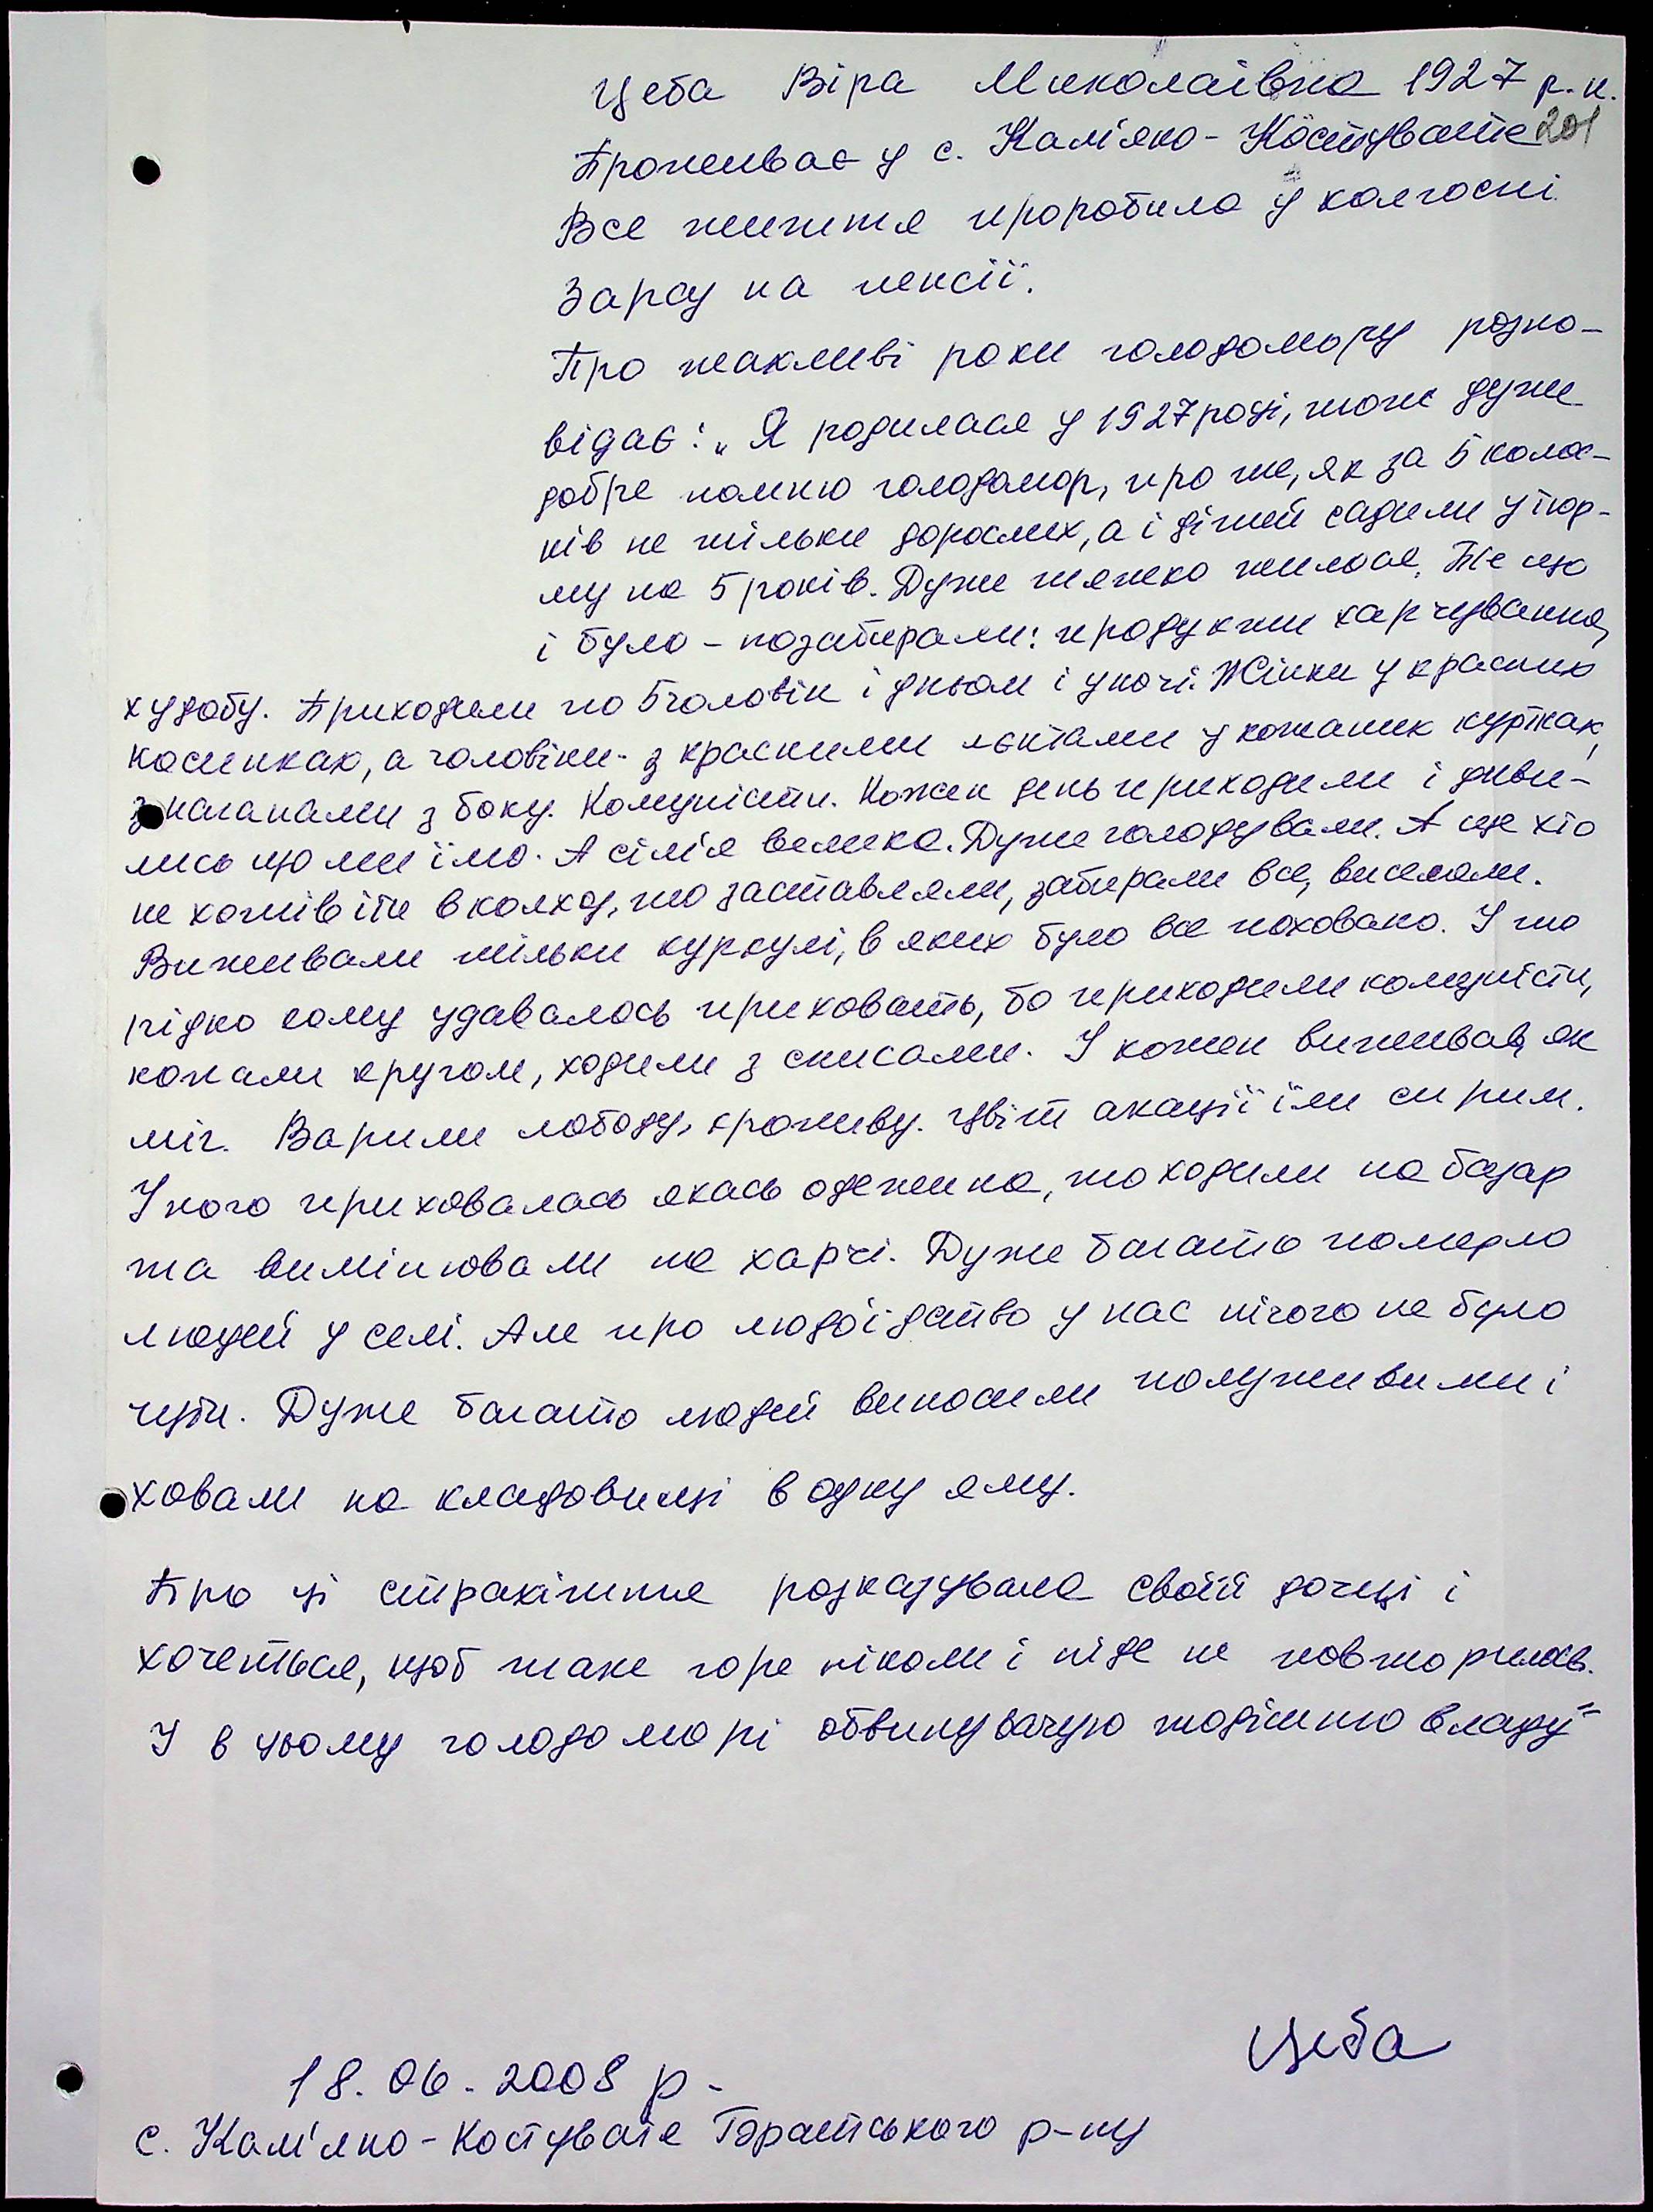 Цеба Віра Миколаївна 1927 р.н.
201
Проживає у с. Кам'яно-Костувате
Все життя проробила у колгоспі.
Зараз на пенсії.
Про жахливі роки голодомору розпо-
відає: „Я родилася у 1927 році, тож дуже
добре помню голодомор, про те, як за 5 колос-
ків не тільки дорослих, а і дітей садили у тюр-
му на 5 років. Дуже тяжко жилося. Те що
і було – позабирали: продукти харчування,
худобу. Приходили по 5 чоловік і дньом і уночі. Жінки у красних
косинках, а чоловіки - з красними лєнтами у кожаних куртках,
з наганами з боку. Комуністи. Кожен день приходили і диви-
лись що ми їмо. А сім'я велика. Дуже голодували. А ще хто
не хотів іти в колхоз, то заставляли, забирали все, виселяли.
Виживали тільки куркулі, в яких було все поховано. І то
рідко кому удавалось приховать, бо приходили комуністи,
копали кругом, ходили з списами. І кожен виживав, як
міг. Варили лободу, кропиву. Цвіт акації їли сирим.
У кого приховалась якась одежина, то ходили на базар
та вимінювали на харчі. Дуже багато померло
людей у селі. Але про людоїдство у нас нічого не було
чути. Дуже багато людей виносили полуживими і
ховали на кладовищі в одну яму.
Про ці страхіття розказувала своїй дочці і
хочеться, щоб таке горе ніколи і ніде не повторилось.
І в цьому голодоморі обвинувачую тодішню владу"
Цеба
18.06.2008 р.
с. Кам'яно-Костувате Братського р-ну